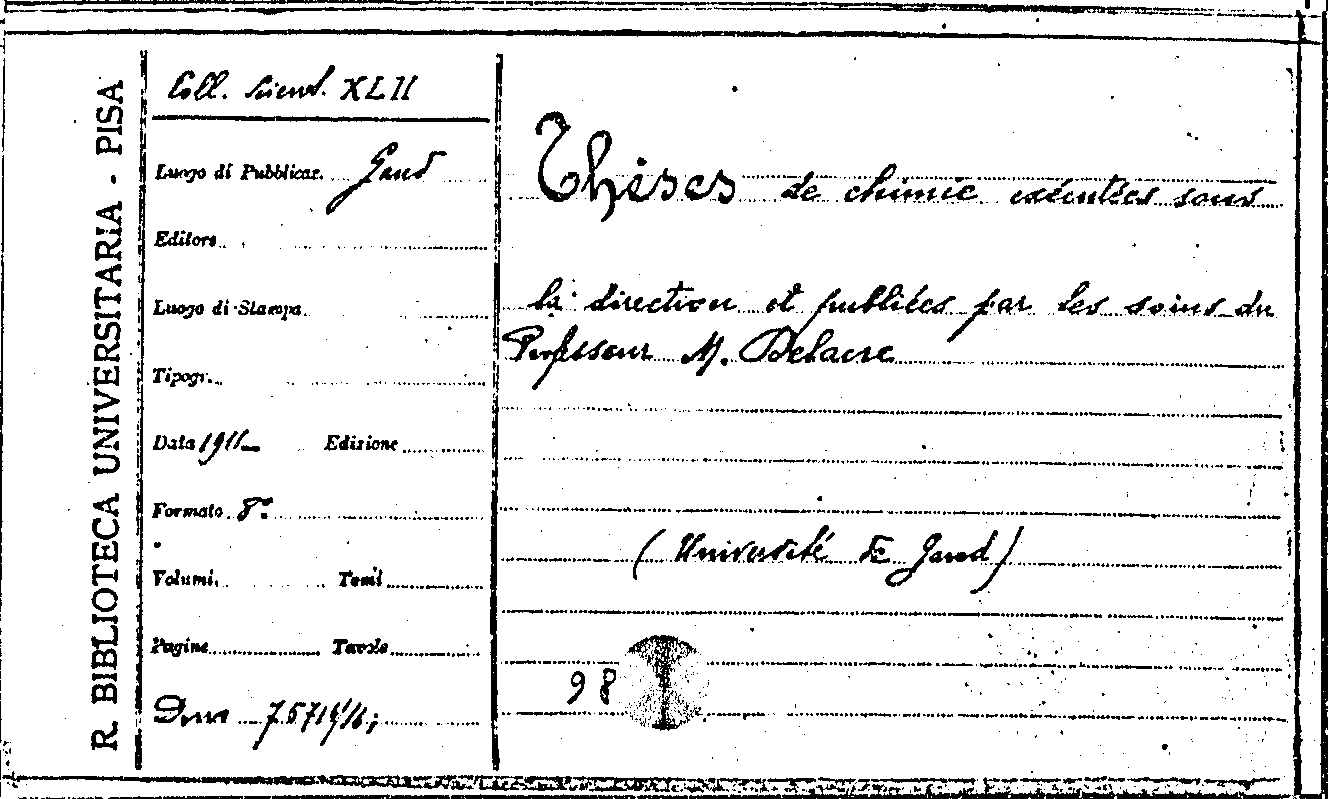 R. BIBLIOTECA UNIVERSITARIA - PISA
Coll. Scient. XLII
Luogo di Pubblicaz. Gand
Editore
Luogo di Stampa
Tipogr.
Data 1911 Edizione
Formato 8°
Volumi Tomi
Pagine Tavole
Dono
Thèses de chimie exécutées sous
la direction et publiées par les soins du
Professeur M. Delacre
(Université de Gand)
98